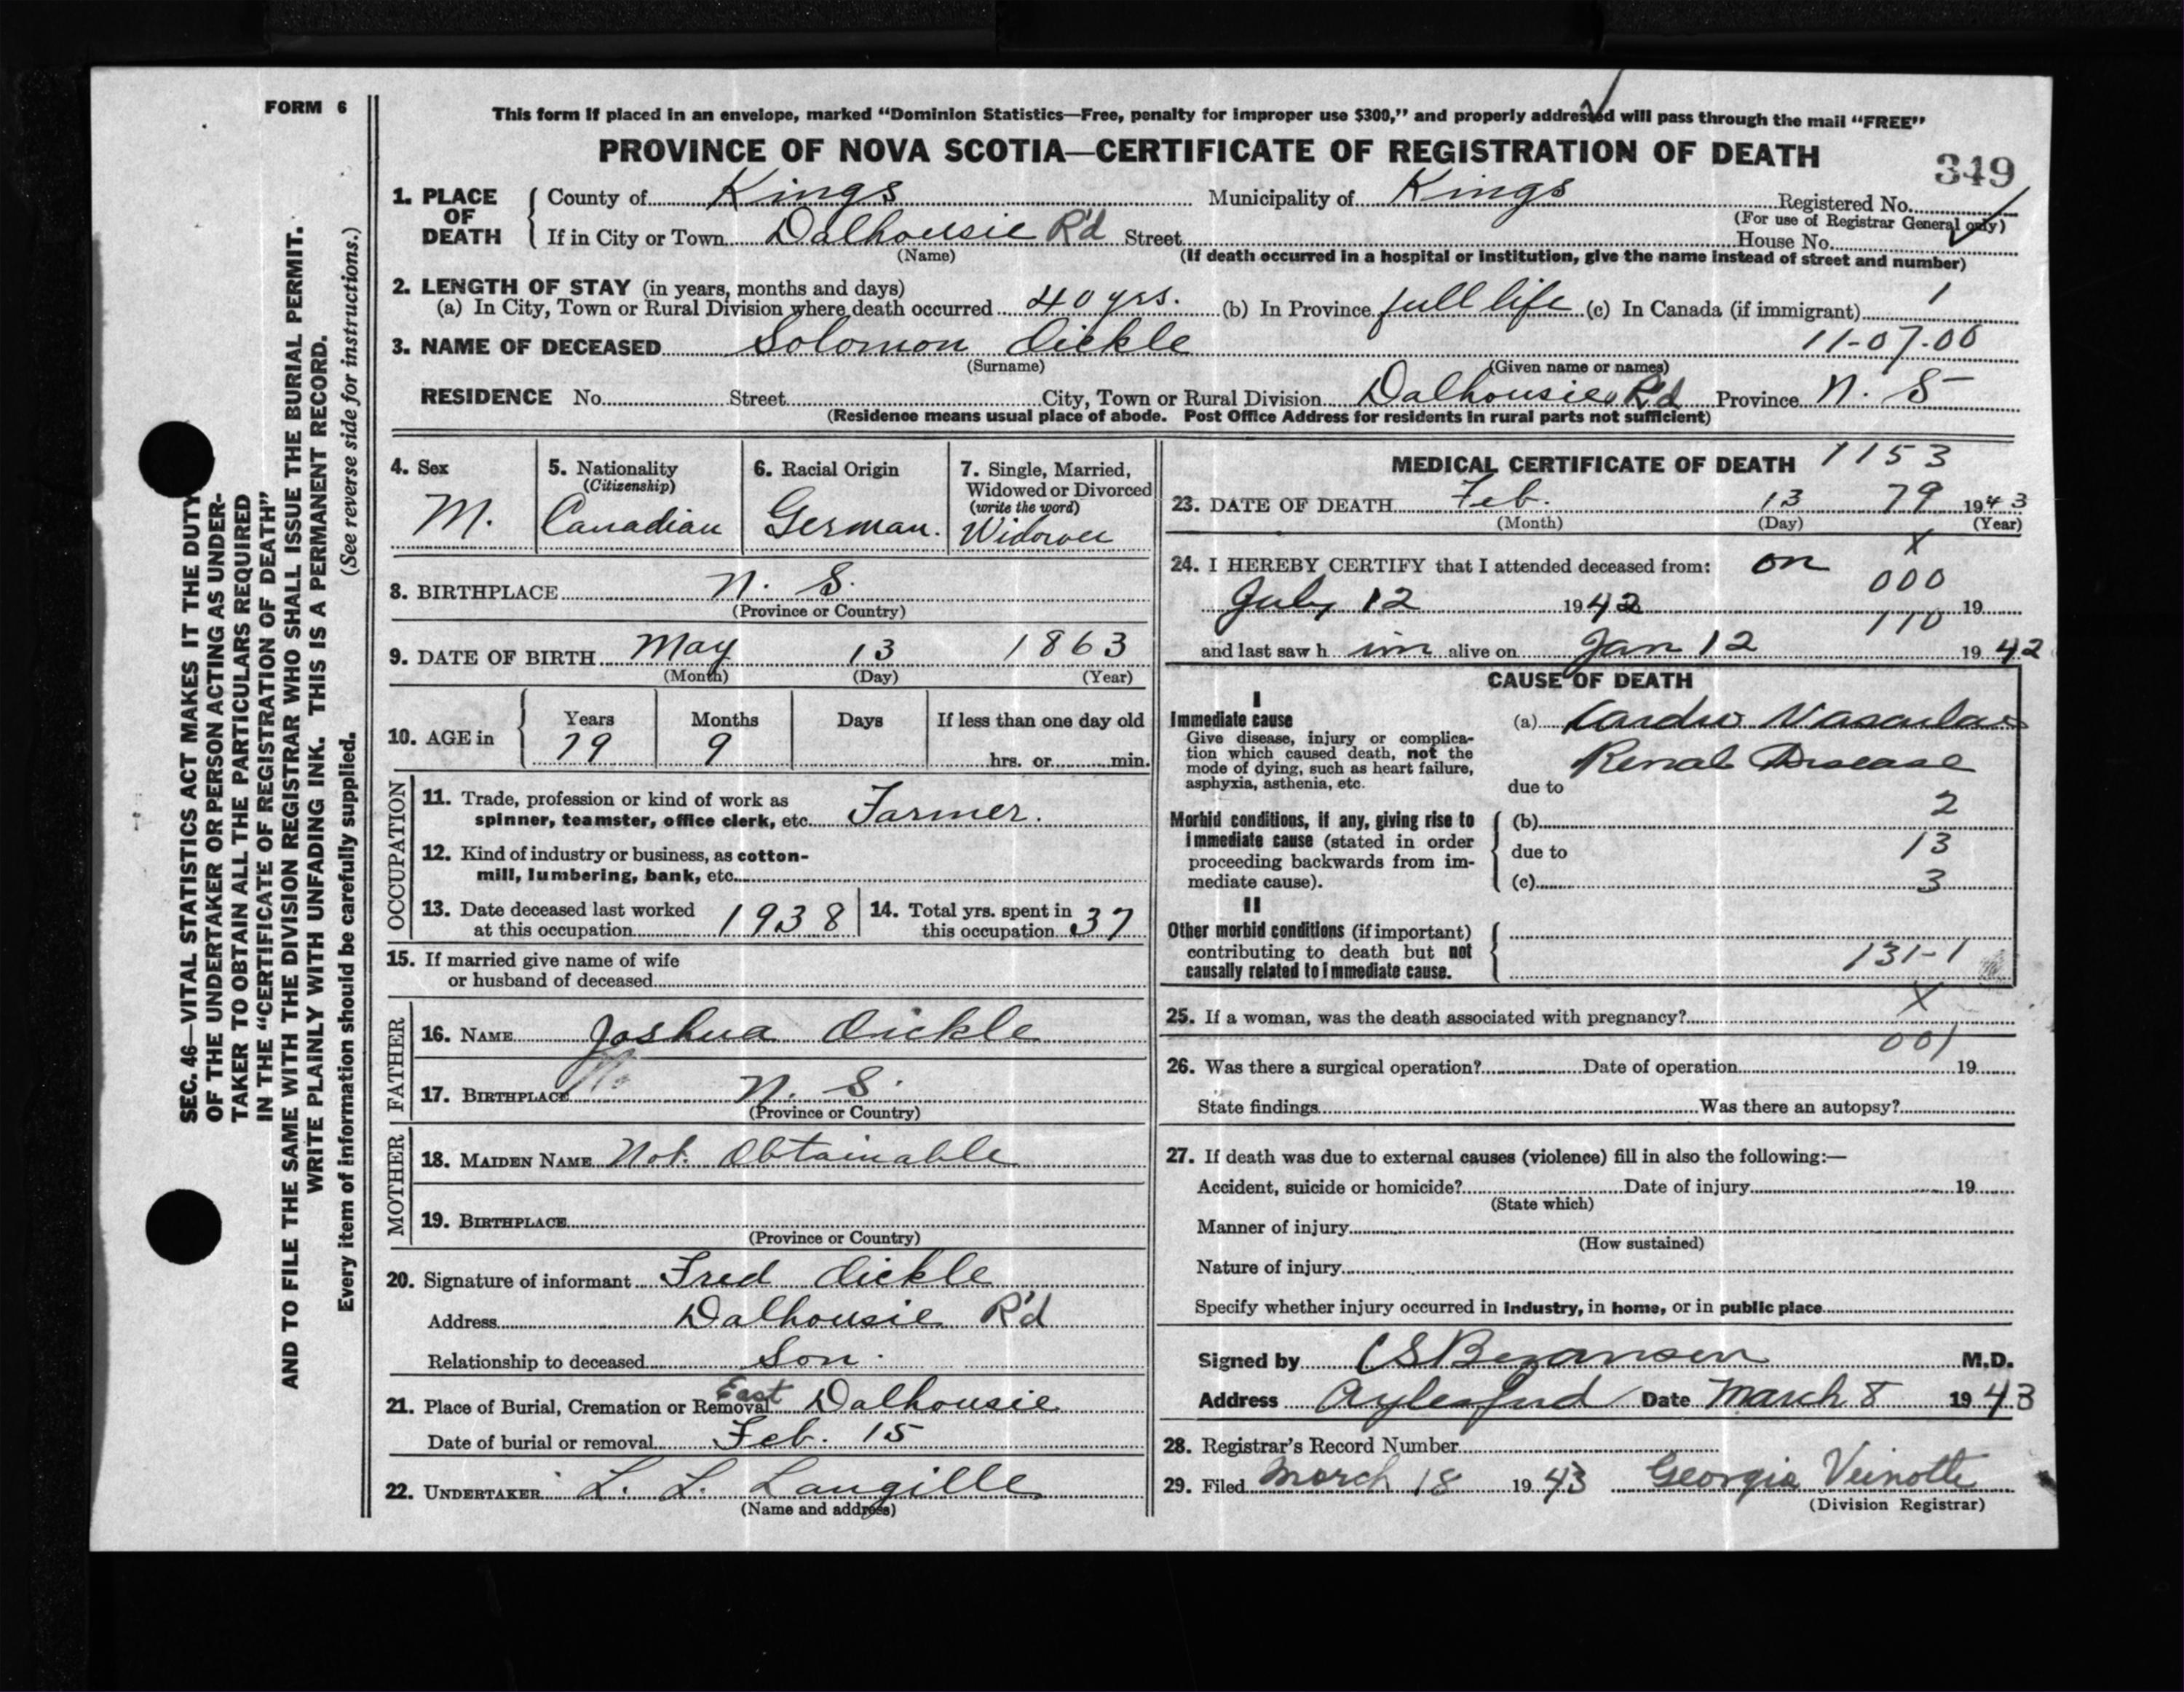 FORM 6
This form if placed in an envelope, marked "Dominion Statistics—Free, penalty for improper use $300," and properly addressed will pass through the mail "FREE"
PROVINCE OF NOVA SCOTIA—CERTIFICATE OF REGISTRATION OF DEATH
349
1. PLACE OF DEATH { County of Kings Municipality of Kings Registered No.
(For use of Registrar General only)
If in City or Town Dalhousie R'd Street House No.
(Name) (If death occurred in a hospital or institution, give the name instead of street and number)
2. LENGTH OF STAY (in years, months and days)
(a) In City, Town or Rural Division where death occurred 40 yrs. (b) In Province full life (c) In Canada (if immigrant) 1
3. NAME OF DECEASED Solomon Oickle 11-07-00
(Surname) (Given name or names)
RESIDENCE No. Street City, Town or Rural Division Dalhousie R'd Province N. S
(Residence means usual place of abode. Post Office Address for residents in rural parts not sufficient)
4. Sex
M.
5. Nationality
(Citizenship)
Canadian
6. Racial Origin
German.
7. Single, Married,
Widowed or Divorced
(write the word)
Widower
8. BIRTHPLACE N. S.
(Province or Country)
9. DATE OF BIRTH May 13 1863
(Month) (Day) (Year)
10. AGE in { Years Months Days If less than one day old
79 9 hrs. or min.
OCCUPATION
11. Trade, profession or kind of work as
spinner, teamster, office clerk, etc. Farmer.
12. Kind of industry or business, as cotton-
mill, lumbering, bank, etc.
13. Date deceased last worked
at this occupation 1938
14. Total yrs. spent in
this occupation 37
15. If married give name of wife
or husband of deceased
FATHER
16. NAME Joshua Oickle
17. BIRTHPLACE N. S.
(Province or Country)
MOTHER
18. MAIDEN NAME Not Obtainable
19. BIRTHPLACE
(Province or Country)
20. Signature of informant Fred Oickle
Address Dalhousie R'd
Relationship to deceased Son.
21. Place of Burial, Cremation or Removal East Dalhousie
Date of burial or removal Feb. 15
22. UNDERTAKER L. L. Langille
(Name and address)
MEDICAL CERTIFICATE OF DEATH 1153
23. DATE OF DEATH Feb. 13 79 1943
(Month) (Day) (Year)
X
24. I HEREBY CERTIFY that I attended deceased from: on
000
July 12 1942 19
110
and last saw h im alive on Jan 12 1942
CAUSE OF DEATH
I
Immediate cause
Give disease, injury or complica-
tion which caused death, not the
mode of dying, such as heart failure,
asphyxia, asthenia, etc.
(a) Cardio Vascular
Renal Disease
due to
Morbid conditions, if any, giving rise to
immediate cause (stated in order
proceeding backwards from im-
mediate cause).
(b) 2
due to 13
(c) 3
II
Other morbid conditions (if important)
contributing to death but not
causally related to immediate cause.
131-1
X
25. If a woman, was the death associated with pregnancy?
001
26. Was there a surgical operation? Date of operation 19
State findings Was there an autopsy?
27. If death was due to external causes (violence) fill in also the following:—
Accident, suicide or homicide? Date of injury 19
(State which)
Manner of injury
(How sustained)
Nature of injury
Specify whether injury occurred in industry, in home, or in public place
Signed by C S Bezanson M.D.
Address Aylesford Date March 8 1943
28. Registrar's Record Number
29. Filed March 18 1943 Georgia Veinotte
(Division Registrar)
SEC. 46—VITAL STATISTICS ACT MAKES IT THE DUTY
OF THE UNDERTAKER OR PERSON ACTING AS UNDER-
TAKER TO OBTAIN ALL THE PARTICULARS REQUIRED
IN THE "CERTIFICATE OF REGISTRATION OF DEATH"
AND TO FILE THE SAME WITH THE DIVISION REGISTRAR WHO SHALL ISSUE THE BURIAL PERMIT.
WRITE PLAINLY WITH UNFADING INK. THIS IS A PERMANENT RECORD.
Every item of information should be carefully supplied. (See reverse side for instructions.)